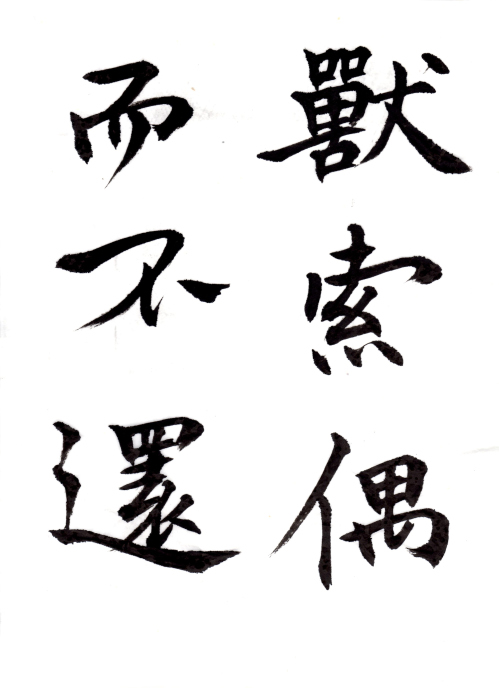 獸索偶
而不還